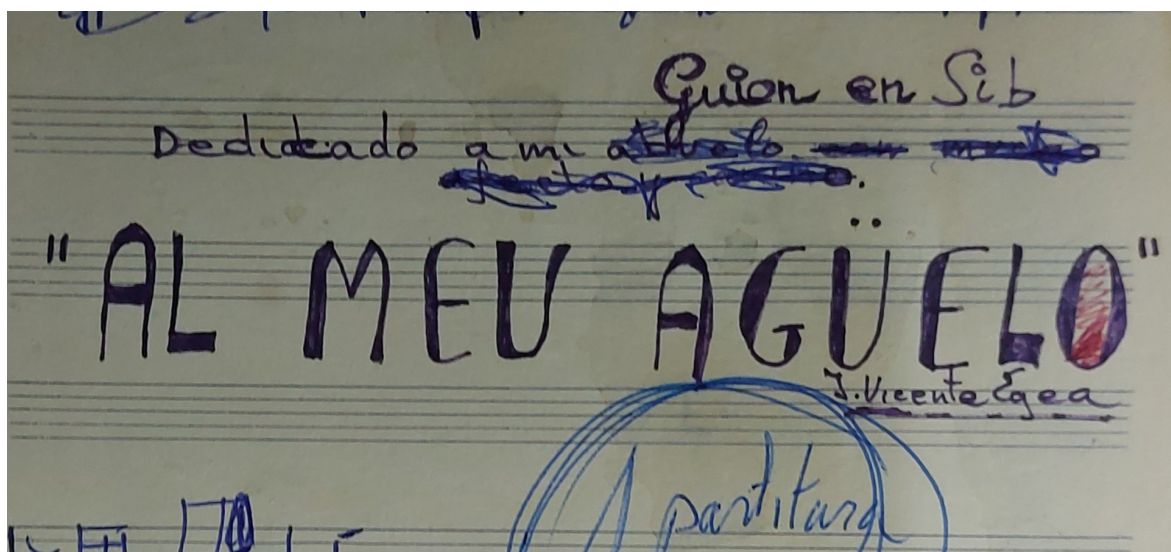 Guion en Sib
Dedicado a mi
"AL MEU AGÜELO"
J. Vicente Egea
1 partitura